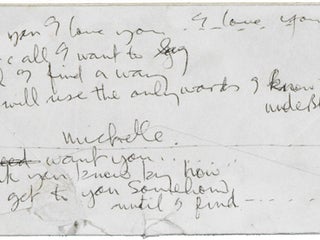 you I love you. I love you
all I want to say
I find a way
will use the only words I know
undeS
Michelle.
want you......
you know by now
get to you somehow
until I find -....